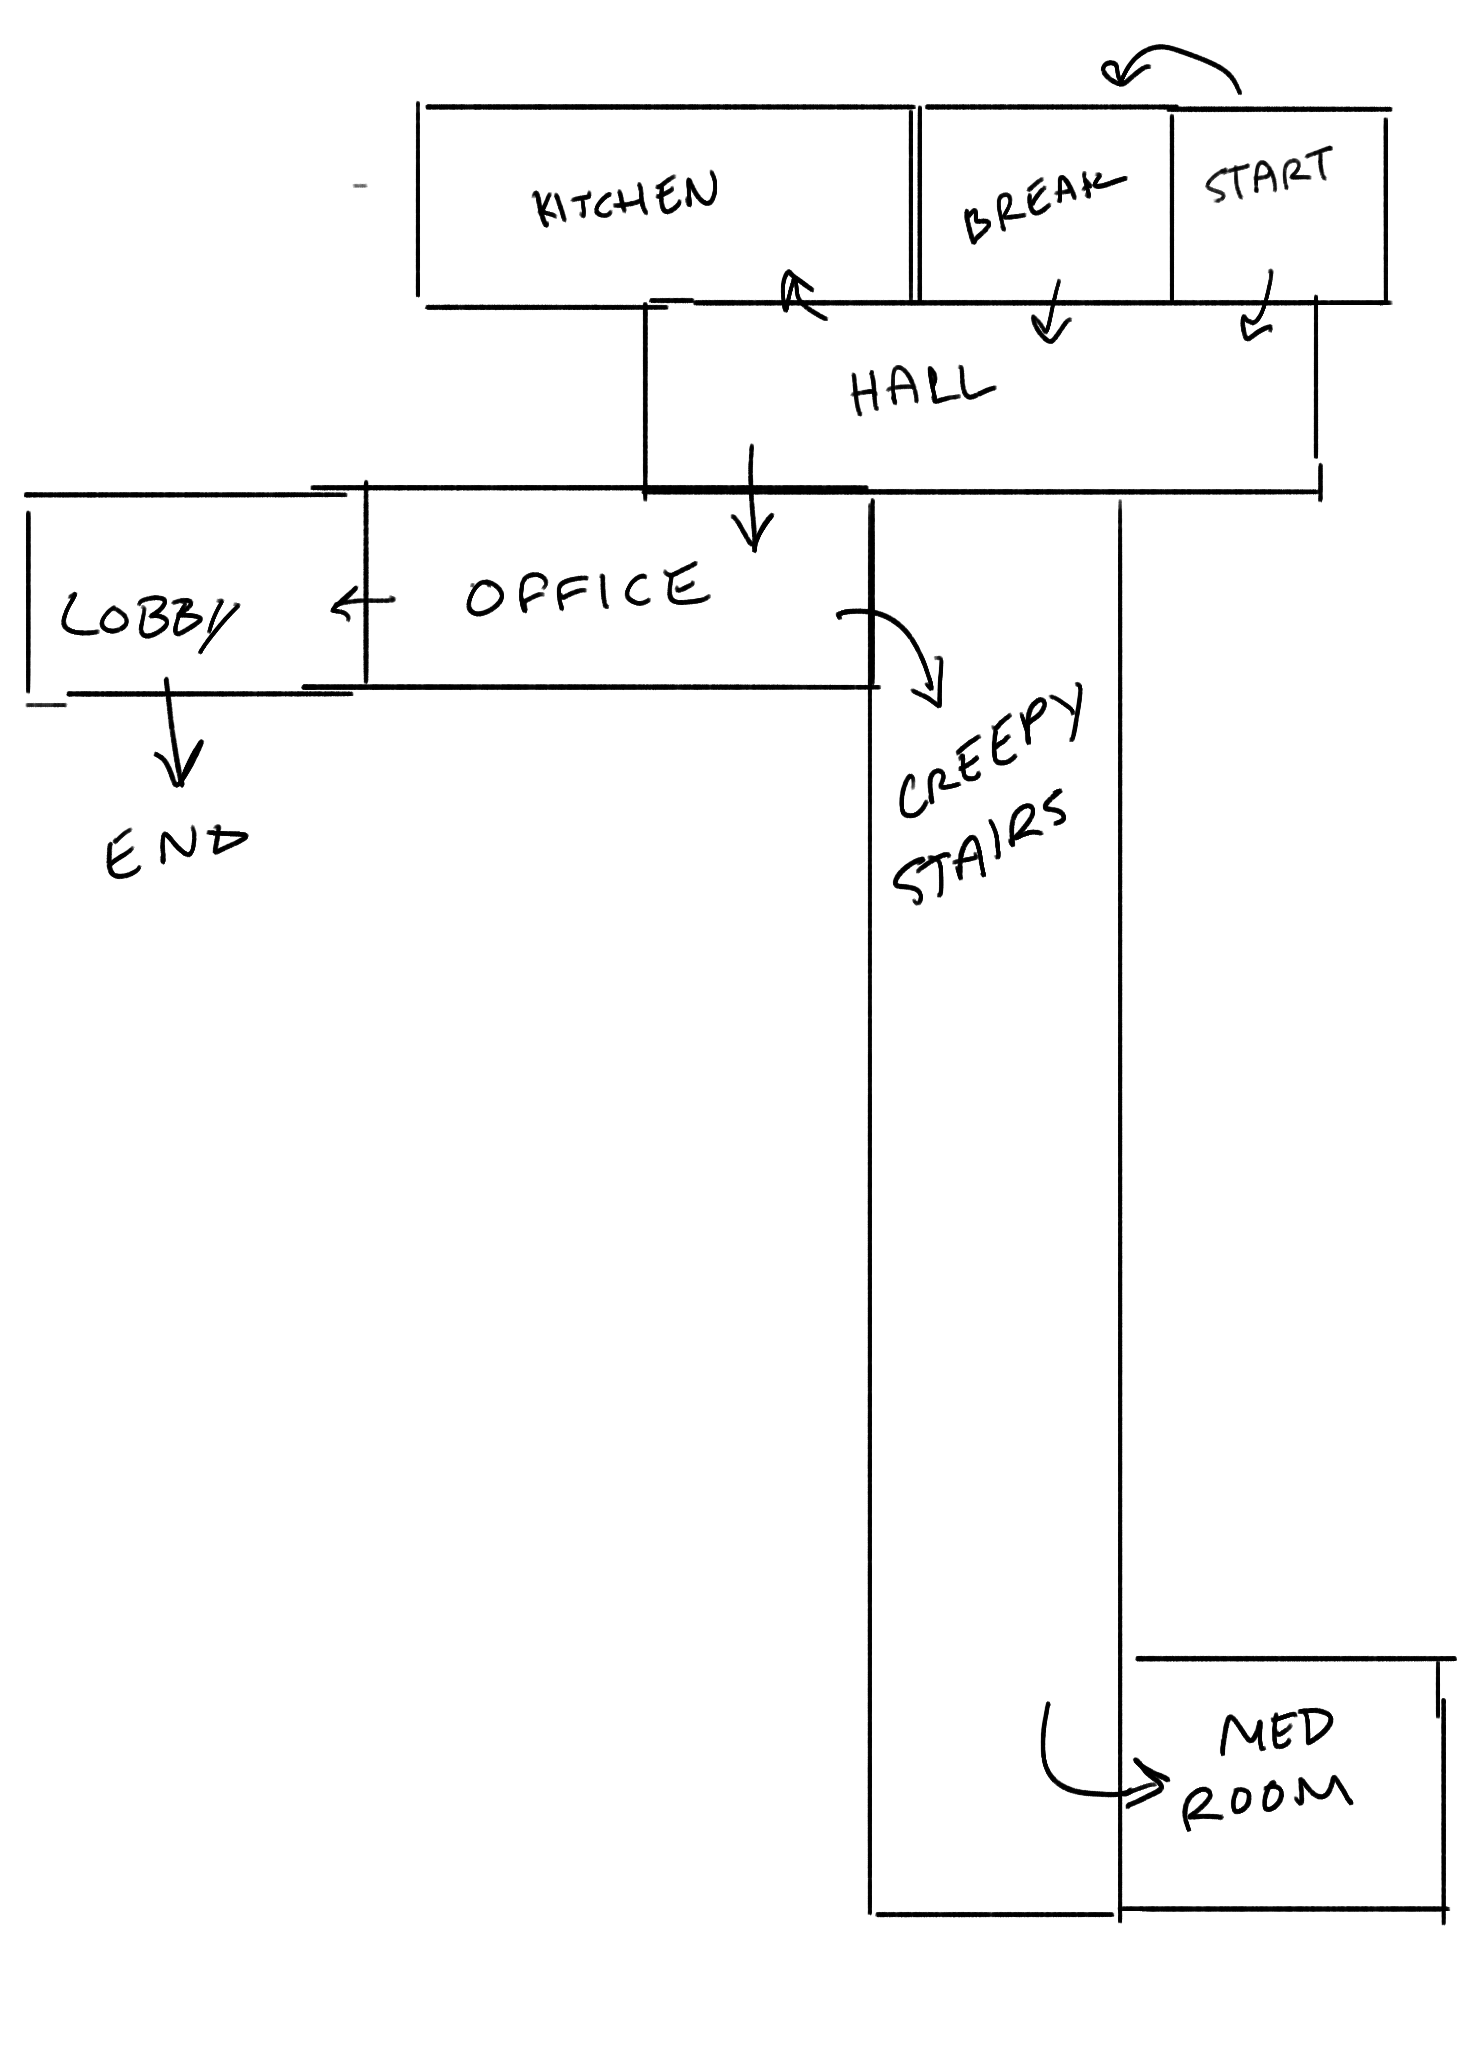 KITCHEN
BREAK
START
HALL
LOBBY
OFFICE
CREEPY
STAIRS
END
MED
ROOM